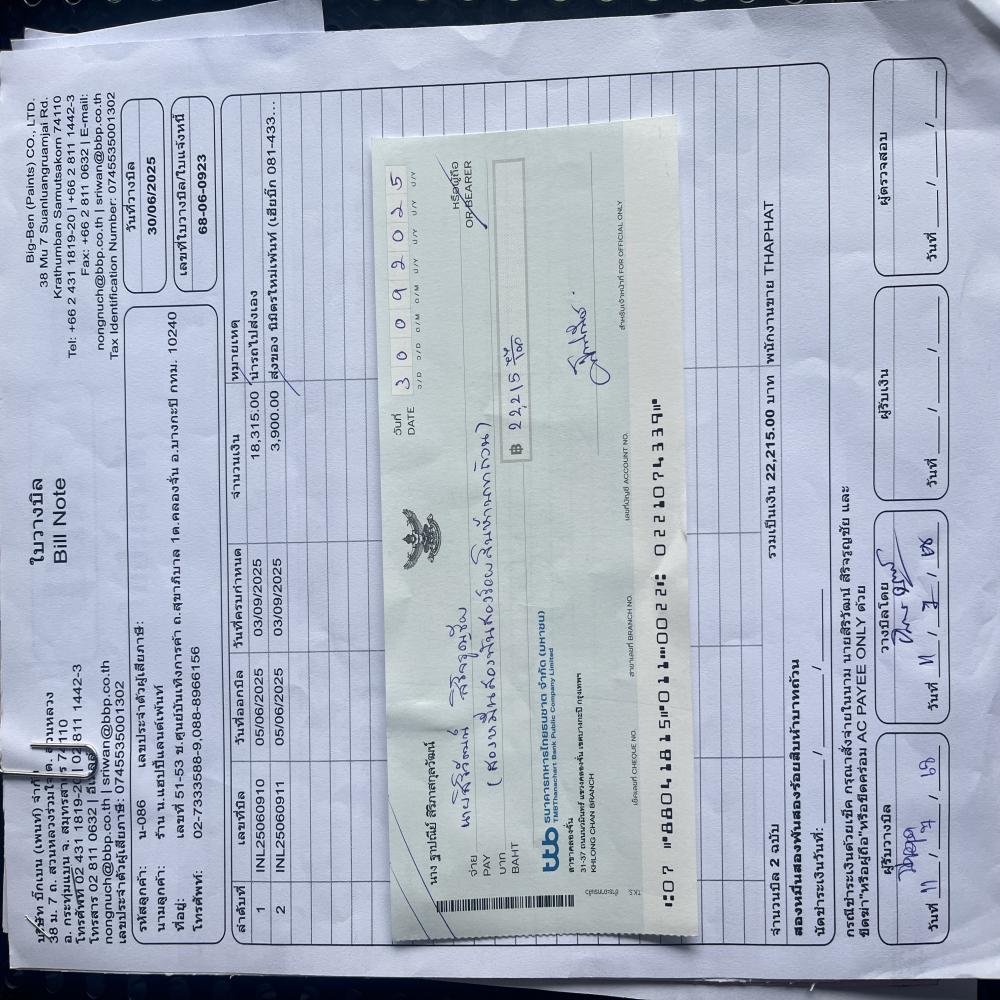 ใบวางบิล
Bill Note
บริษัท บิ๊กเบน (เพนท์) จำกัด
38 ม. 7 ถ. สวนหลวงร่วมใจ ต. สวนหลวง
อ. กระทุ่มแบน จ. สมุทรสาคร 74110
โทรศัพท์ 02 431 1819-20 | 02 811 1442-3
โทรสาร 02 811 0632 | อีเมลล์
nongnuch@bbp.co.th | sriwan@bbp.co.th
เลขประจำตัวผู้เสียภาษี: 0745535001302
Big-Ben (Paints) CO., LTD.
38 Mu 7 Suanluangruamjai Rd.
Krathumban Samutsakorn 74110
Tel: +66 2 431 1819-20 | +66 2 811 1442-3
Fax: +66 2 811 0632 | E-mail:
nongnuch@bbp.co.th | sriwan@bbp.co.th
Tax Identification Number: 0745535001302
รหัสลูกค้า: น-086 เลขประจำตัวผู้เสียภาษี:
นามลูกค้า: ร้าน น.แฮปปี้แลนด์เพ้นท์
ที่อยู่: เลขที่ 51-53 ซ.ศูนย์บันเทิงการค้า ถ.สุขาภิบาล 1ต.คลองจั่น อ.บางกะปิ กทม. 10240
โทรศัพท์: 02-7333588-9,088-8966156
วันที่วางบิล
30/06/2025
เลขที่ใบวางบิล/ใบแจ้งหนี้
68-06-0923
ลำดับที่ เลขที่บิล วันที่ออกบิล วันที่ครบกำหนด จำนวนเงิน หมายเหตุ
1 INL25060910 05/06/2025 03/09/2025 18,315.00 นำรถไปส่งเอง
2 INL25060911 05/06/2025 03/09/2025 3,900.00 ส่งของ นิมิตรใหม่เพ้นท์ (เฮียบิ๊ก 081-433...
นาง ฐาปณีย์ สิริภาสกุลวัฒน์
วันที่
DATE 30092025
D/D D/D M/M M/M Y/Y Y/Y Y/Y Y/Y
จ่าย
PAY นายสิริวัฒน์ สิริจรูญชัย
หรือผู้ถือ
OR BEARER
บาท
BAHT (สองหมื่นสองพันสองร้อยสิบห้าบาทถ้วน)
฿ 22,215
ttb ธนาคารทหารไทยธนชาต จำกัด (มหาชน)
TMBThanachart Bank Public Company Limited
สาขาคลองจั่น
31-37 ถนนนวมินทร์ แขวงคลองจั่น เขตบางกะปิ กรุงเทพฯ
KHLONG CHAN BRANCH
เช็คเลขที่ CHEQUE NO. สาขาเลขที่ BRANCH NO. เลขที่บัญชี ACCOUNT NO. สำหรับเจ้าหน้าที่ FOR OFFICIAL ONLY
⑆07 ⑈88041815⑈011⑈0022⑆ 0221074339⑈
จำนวนบิล 2 ฉบับ รวมเป็นเงิน 22,215.00 บาท พนักงานขาย THAPHAT
สองหมื่นสองพันสองร้อยสิบห้าบาทถ้วน
นัดชำระเงินวันที่: ____/____/____
กรณีชำระเงินด้วยเช็ค กรุณาสั่งจ่ายในนาม นายสิริวัฒน์ สิริจรูญชัย และ
ขีดฆ่า"หรือผู้ถือ"หรือขีดคร่อม AC PAYEE ONLY ด้วย
ผู้รับวางบิล วางบิลโดย ผู้รับเงิน ผู้ตรวจสอบ
วันที่ 11 / 7 / 68 วันที่ 11 / 7 / 68 วันที่ ___/___/___ วันที่ ___/___/___